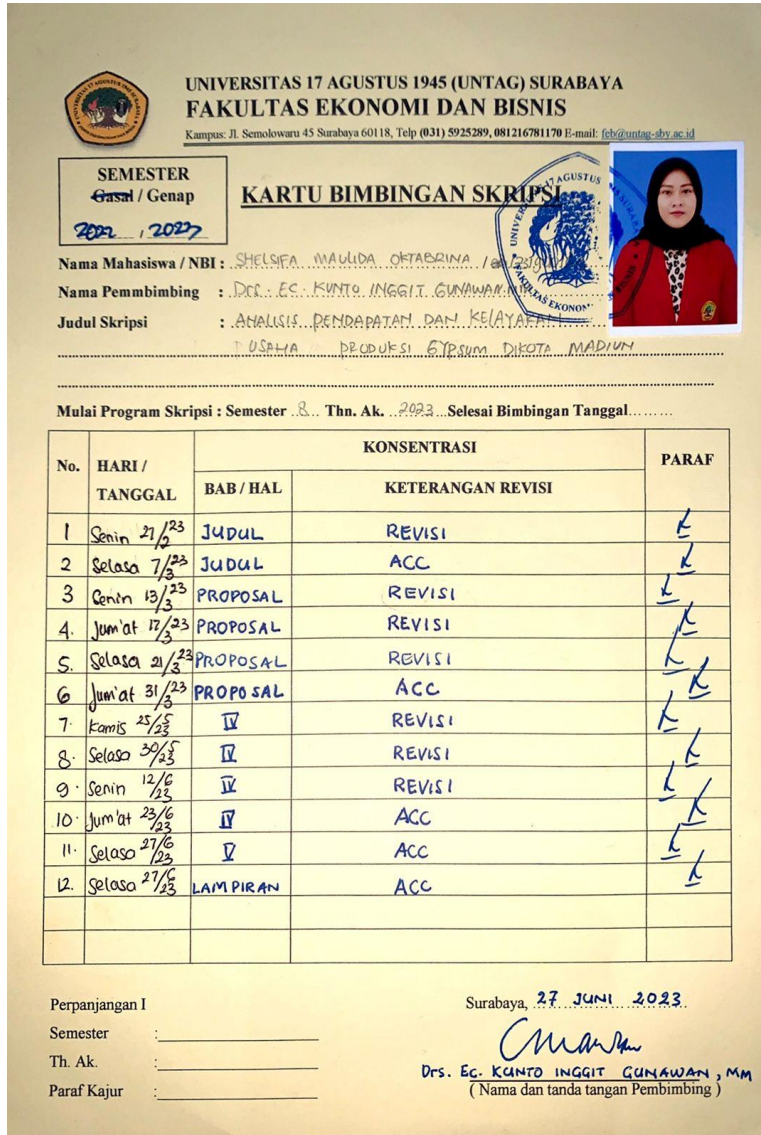 UNIVERSITAS 17 AGUSTUS 1945 (UNTAG) SURABAYA
FAKULTAS EKONOMI DAN BISNIS
Kampus: Jl. Semolowaru 45 Surabaya 60118, Telp (031) 5925289, 081216781170 E-mail: feb@untag-sby.ac.id
SEMESTER
Gasal / Genap
2022 , 2023
KARTU BIMBINGAN SKRIPSI
Nama Mahasiswa / NBI : SHELSIFA MAULIDA OKTABRINA /
Nama Pemmbimbing : Drs. EC. KUNTO INGGIT GUNAWAN.
Judul Skripsi : ANALISIS PENDAPATAN DAN KELAYAKAN
USAHA PRODUKSI GYPSUM DIKOTA MADIUN
Mulai Program Skripsi : Semester 8 Thn. Ak. 2023 Selesai Bimbingan Tanggal
No. HARI / TANGGAL KONSENTRASI PARAF
BAB / HAL KETERANGAN REVISI
1 Senin 27/2 23 JUDUL REVISI
2 Selasa 7/3 23 JUDUL ACC
3 Senin 13/3 23 PROPOSAL REVISI
4. Jum'at 17/3 23 PROPOSAL REVISI
5. Selasa 21/3 23 PROPOSAL REVISI
6 Jum'at 31/3 23 PROPOSAL ACC
7. Kamis 25/5 23 IV REVISI
8. Selasa 30/5 23 IV REVISI
9. Senin 12/6 23 IV REVISI
10. Jum'at 23/6 23 IV ACC
11. Selasa 27/6 23 V ACC
12. Selasa 27/6 23 LAMPIRAN ACC
Perpanjangan I
Semester :
Th. Ak. :
Paraf Kajur :
Surabaya, 27 JUNI 2023
Drs. Ec. KUNTO INGGIT GUNAWAN, MM
( Nama dan tanda tangan Pembimbing )